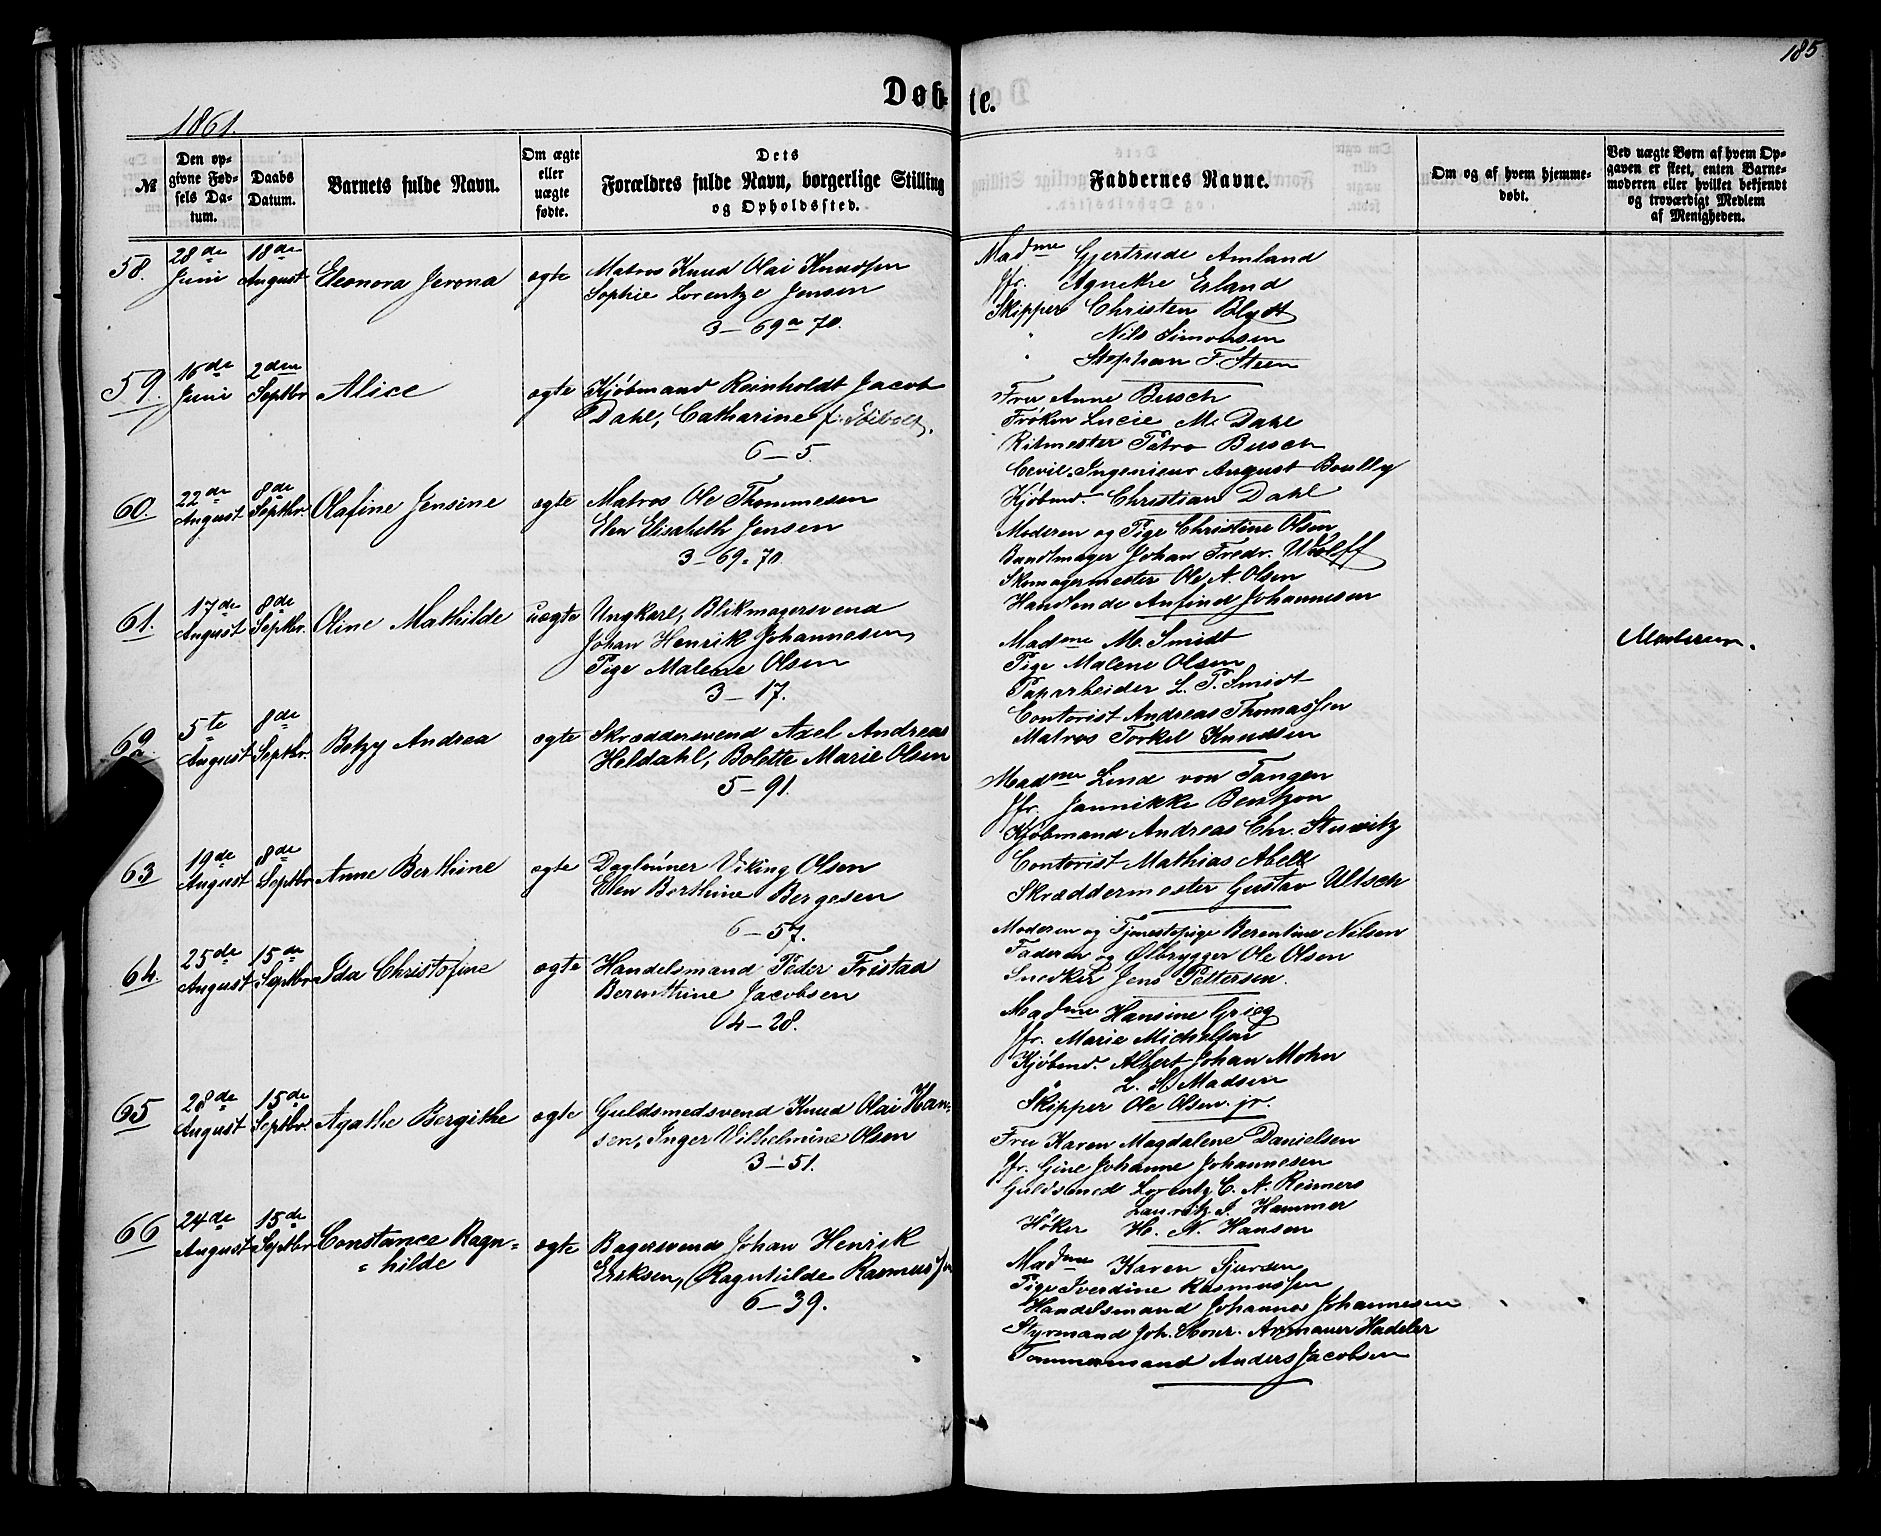 185.
Døbte.
1861.
№
Den opgivne Fødsels Datum.
Daabs Datum.
Barnets fulde Navn.
Om ægte eller uægte fødte.
Dets Forældres fulde Navn, borgerlige Stilling og Opholdssted.
Faddernes Navne.
Om og af hvem hjemmedøbt.
Ved uægte Børn af hvem Opgaven er skeet, enten Barnemoderen eller hvilket bekjendt og troværdigt Medlem af Menigheden.
58. 28de Juni 18de August Eleonora Jerona ægte Matros Knud Olai Knudsen
Sophie Lorentze Jensen
3–69a70.
Madme Gjertrude Amland
Jfr. Agnethe Esland
Skipper Christen Blydt
" Nils Simonsen
" Stephan F. Steen
59. 16de Juni 2den Septbr Alice ægte Kjøbmand Reinholdt Jacob
Dahl, Catharine f.
6–5.
Fru Anne Busch
Frøken Lucie M. Dahl
Ritmester Petro Busch
Cevil Ingenieur August Boully
Kjøbmd. Christian Dahl
60. 22de August 8de Septbr. Olafine Jensine ægte Matros Ole Thommesen
Elen Elisabeth Jensen
3–69.70.
Moderen og Pige Christine Olsen
Bundtmager Johan Fredr. Wolff
Skomagermester Ole A. Olsen
Handlende Anfind Johannesen
61. 17de August 8de Septbr. Oline Mathilde uægte Ungkarl, Blikmagersvend
Johan Henrik Johannesen,
Pige Malene Olsen
3–17.
Madme M. Smidt
Pige Malene Olsen
Paparbeider L. P. Smidt
Contorist Andreas Thomassen
Matros Torkel Knudsen
Moderen.
62. 5te August 8de Septbr. Betzy Andrea ægte Skræddersvend Axel Andreas
Heldahl, Bolette Marie Olsen
5–91.
Madme Lind von Tangen
Jfr. Jannikke Bentzon
Kjøbmand Andreas Chr. Stuwitz
Contorist Mathias Abell
Skræddermester Gustav Ultsch
63 19de August 8de Septbr Anne Berthine ægte Daglønner Viking Olsen
Elen Berthine Bergesen
6–57.
Moderen og Tjenestepige Berentine Nilsen
Faderen og Ølbrygger Ole Olsen
Snedker Jens Pettersen.
64. 25de August 15de Septbr Ida Christofine ægte Handelsmand Peder Fristad
Berenthine Jacobsen
4–28.
Madme Hansine Grieg
Jfr. Marie Michelsen
Kjøbmd. Albert Johan Mohn
" L. S. Madsen
Skipper Ole Olsen jr.
65 28de August 15de Septbr. Agathe Bergithe ægte Guldsmedsvend Knud Olai Han-
sen, Inger Vilhelmine Olsen
3–51.
Fru Karen Magdalene Danielsen
Jfr. Gine Johanne Johannesen
Guldsmed Lorentz C. A. Reimers
" Lauritz J. Hammer
Høker H. N. Hansen
66 24de August 15de Septbr Constance Ragn=
=hilde ægte Bagersvend Johan Henrik
Eriksen, Ragnhilde Rasmussen
6–39.
Madme Karen Sjursen
Pige Iverdine Rasmussen
Handelsmand Johannes Johannesen
Styrmand Joh. Armauer Hadeler
Tømmermand Anders Jacobsen